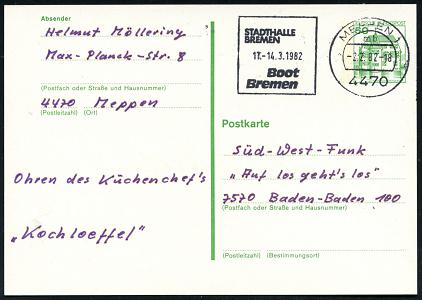 Absender
Helmut Möllering
Max-Planck-Str. 8
(Postfach oder Straße und Hausnummer)
4470 Meppen
(Postleitzahl) (Ort)
Ohren des Küchenchef's
„Kochloeffel"
STADTHALLE
BREMEN
17.-14.3.1982
Boot
Bremen
MEPPEN 1
mb
-2.2.82-18
4470
60
Postkarte
Süd-West-Funk
„Auf los geht's los"
7570 Baden-Baden 100
(Postfach oder Straße und Hausnummer)
(Postleitzahl) (Bestimmungsort)